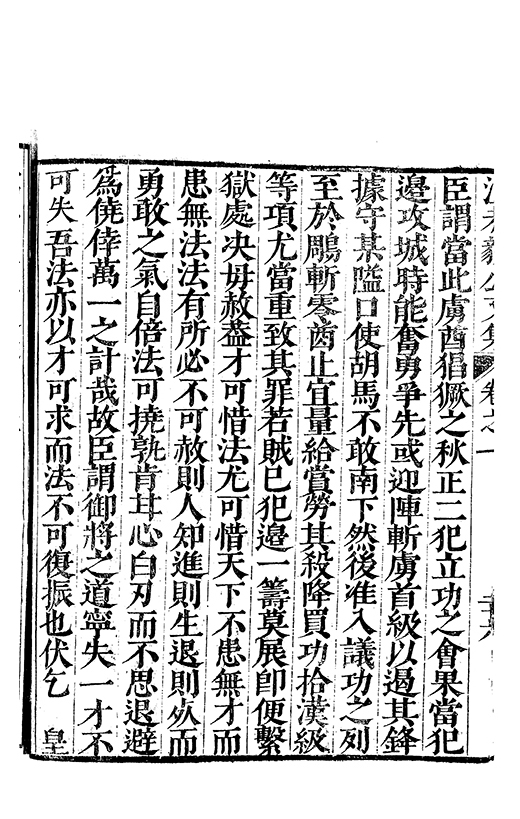 文集 卷之一
臣謂當此虜酋猖獗之秋正二犯立功之會果當犯
邊攻城時能奮勇爭先或迎陣斬虜首級以遏其鋒
據守某隘口使胡馬不敢南下然後准入議功之列
至於鵰斬零酋止宜量給賞勞其殺降買功拾漢級
等項尤當重致其罪若賊已犯邊一籌莫展卽便繫
獄處决毋赦葢才可惜法尤可惜天下不患無才而
患無法法有所必不可赦則人知進則生退則㱙而
勇敢之氣自倍法可撓孰肯甘心白刃而不思退避
為僥倖萬一之計哉故臣謂御將之道寧失一才不
可失吾法亦以才可求而法不可復振也伏乞 皇